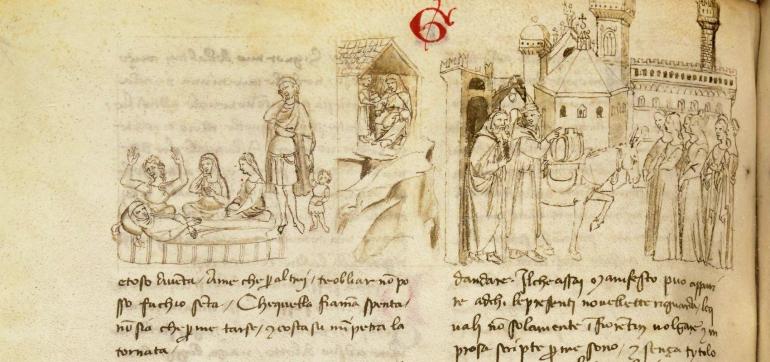 etoso diventa / Ame che p altri / te obliar nō po
sso fachio senta / Che quella fiama spenta /
nō sia che p me tarse / & costa su mi petra la
tornata
dandare. Il che assai manifesto puo appari
re achi le presenti novellette riguarda le q
uali nō solamente i fiorentin volgare & in
prosa scripte p me sono / & senza tytilo